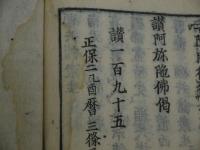 讃阿弥陀佛偈
讃一百九十五
正保二乙酉暦三條